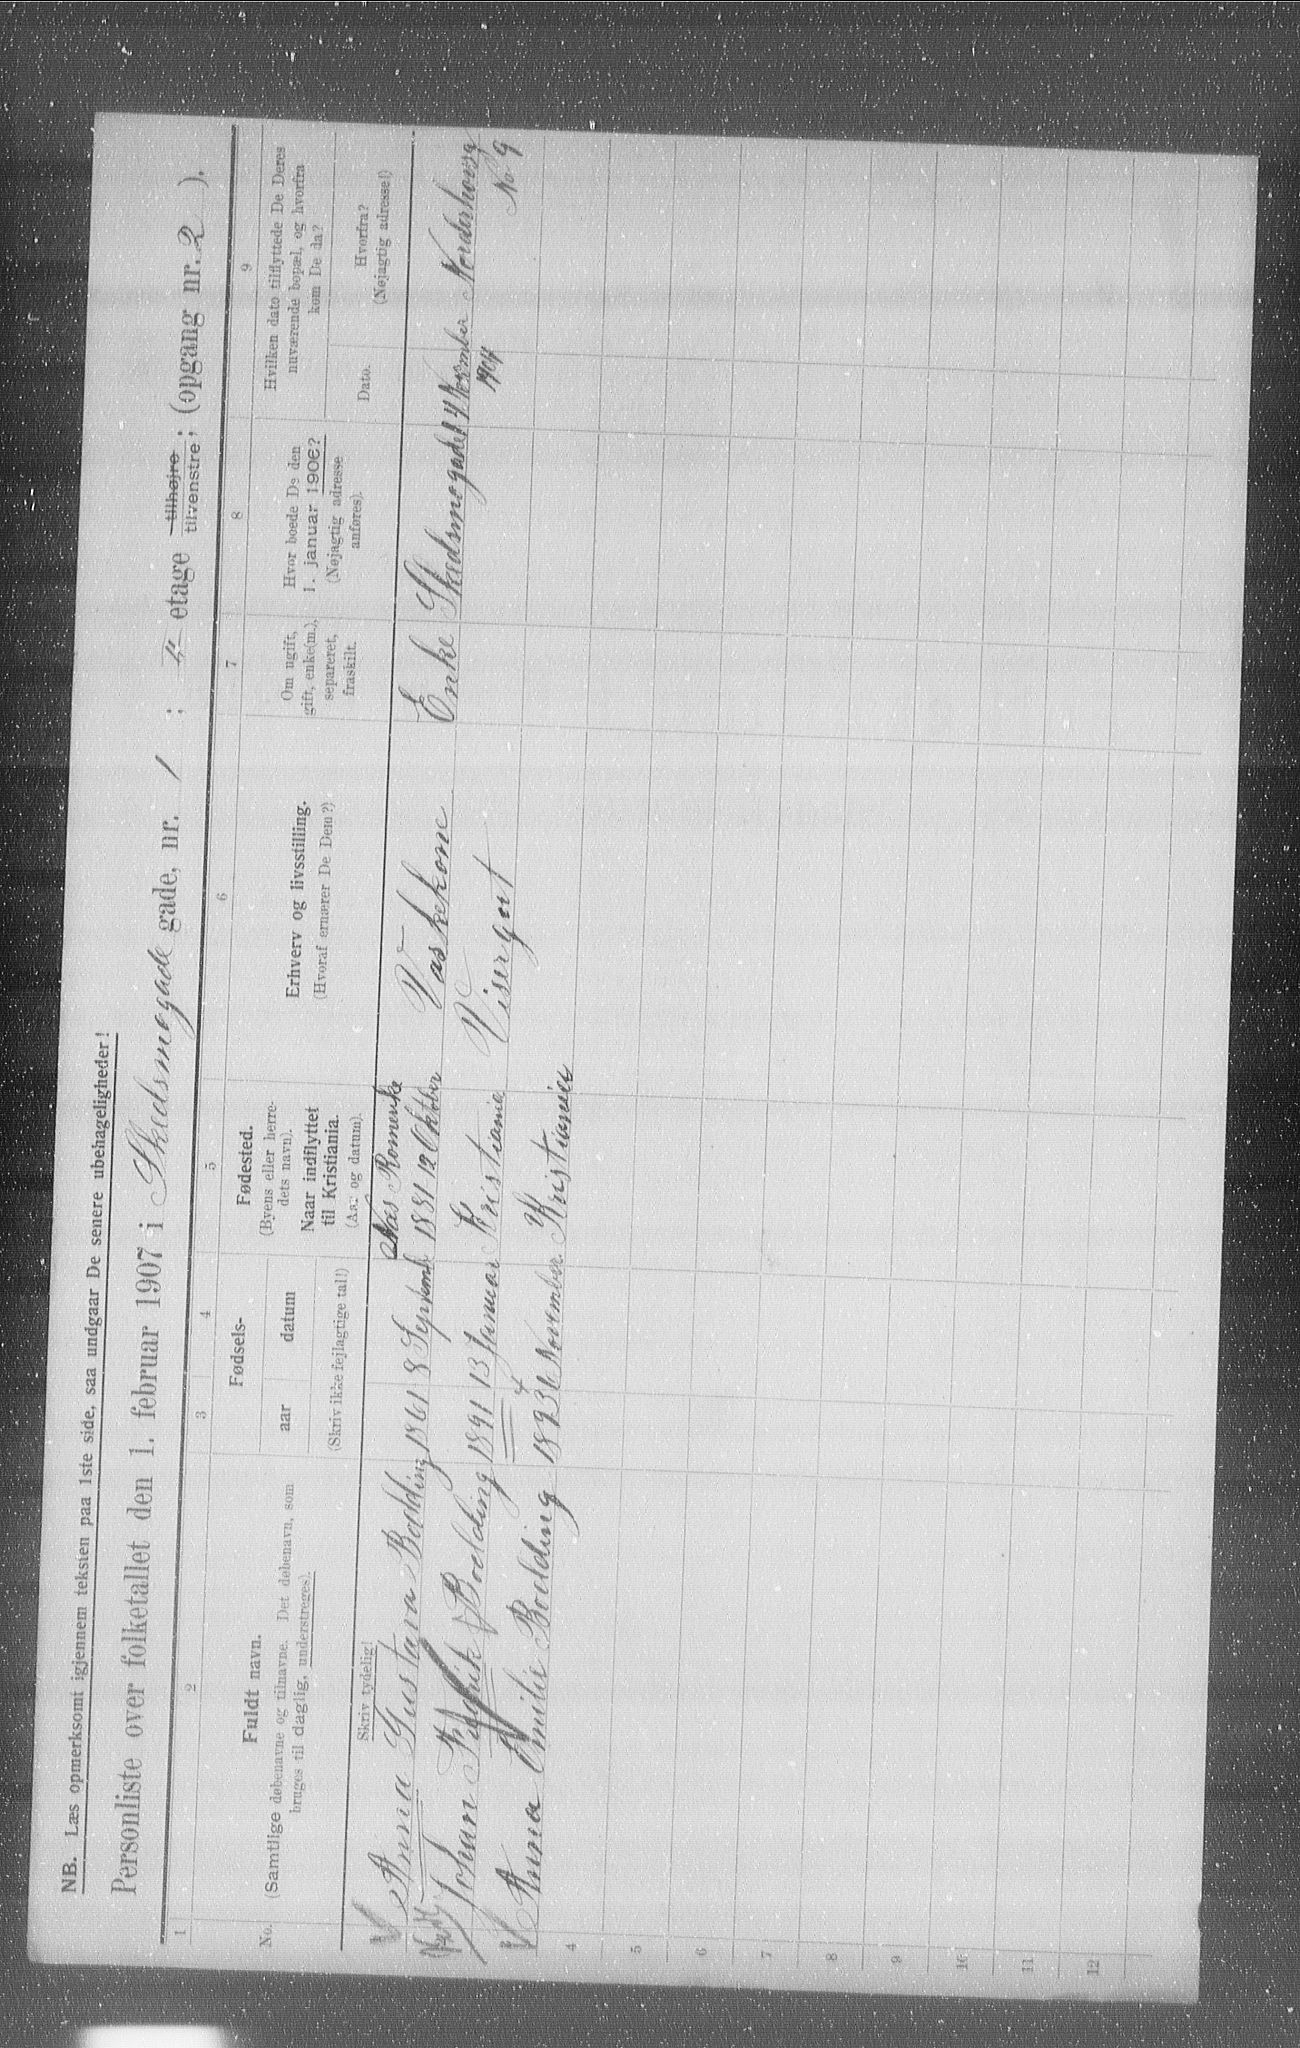 NB. Læs opmerksomt igjennem teksten paa 1ste side, saa undgaar De senere ubehageligheder!
Personliste over folketallet den 1. februar 1907 i Skedsmogade gade, nr. 1 ; 4 etage tilhøjre tilvenstre; (opgang nr. 2 ).
1 2 3 4 5 6 7 8 9
No.
Fuldt navn.
(Samtlige døbenavne og tilnavne. Det døbenavn, som
bruges til daglig, understreges).
Skriv tydelig!
Fødsels-
aar datum
(Skriv ikke fejlagtige tal!)
Fødested.
(Byens eller herre-
dets navn).
Naar indflyttet
til Kristiania.
(Aar og datum).
Erhverv og livsstilling.
(Hvoraf ernærer De Dem?)
Om ugift,
gift, enke(m.),
separeret,
fraskilt.
Hvor boede De den
1. januar 1906?
(Nøjagtig adresse
anføres).
Hvilken dato tilflyttede De Deres
nuværende bopæl, og hvorfra
kom De da?
Dato.
Hvorfra?
(Nøjagtig adresse!)
Næs Romerike
Anna Gustava Bodding 1861 8 Septemb 1881 12 Oktber Vaskekone Enke Skedsmogade 1 4 November Norderhovsg
1904 No 9
Johan Fredrik Boelding 1891 13 Januar Kristiania Visergut
Anna Emilie Boelding 1893 6 November Kristiania
4
5
6
7
8
9
10
11
12